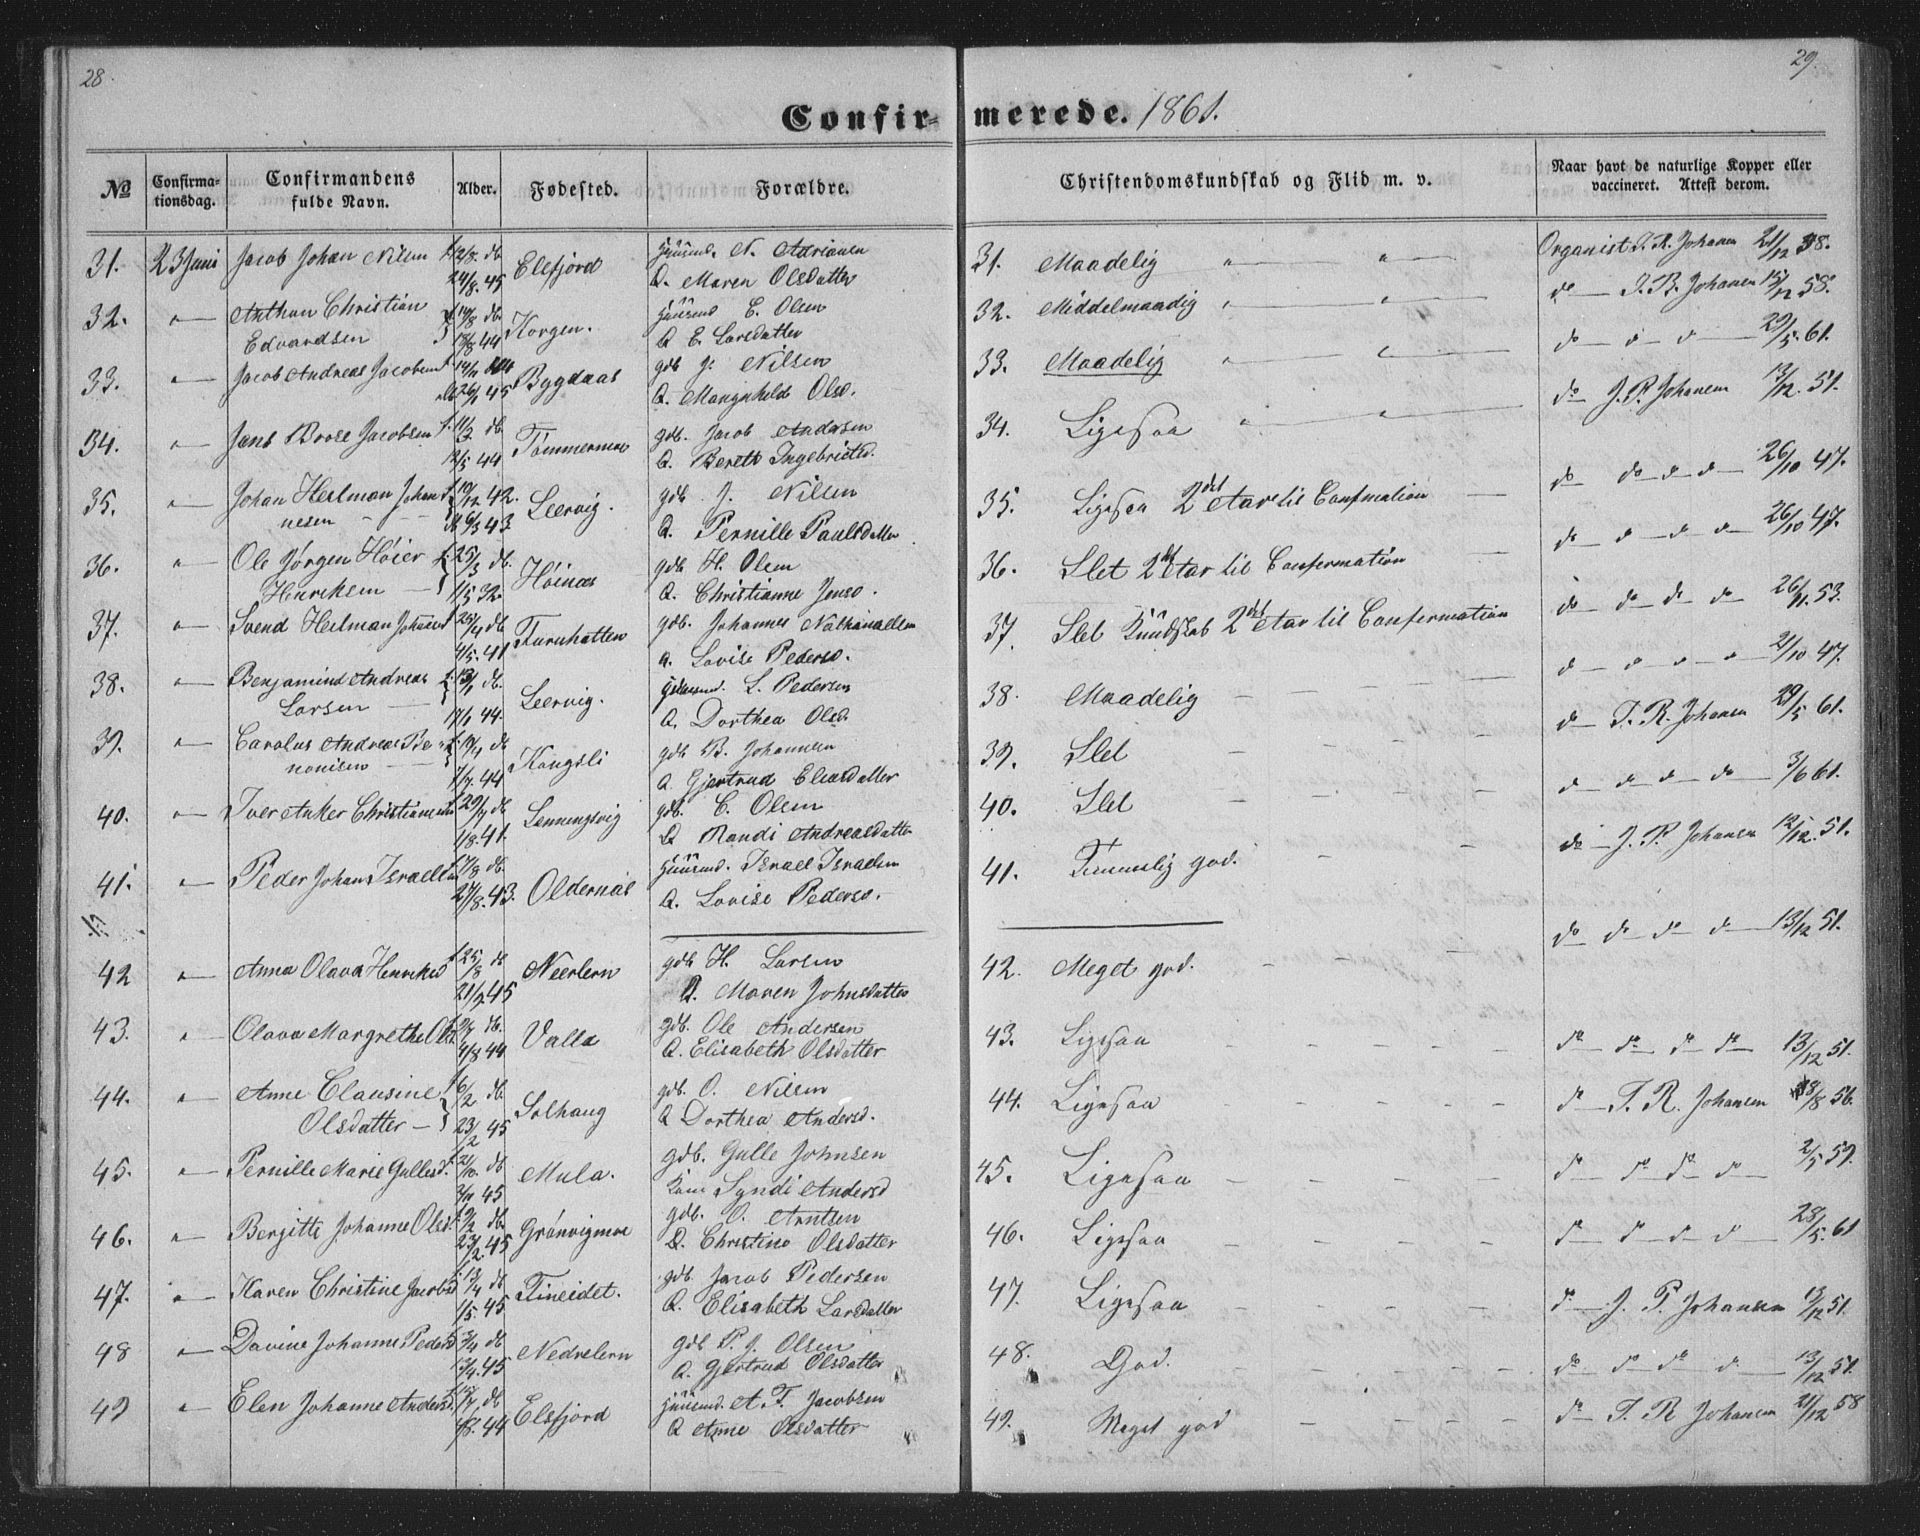 28.
29.
Confir- merede. 1861.
No
Confirma-
tionsdag.
Confirmandens
fulde Navn.
Alder.
Fødested.
Forældre.
Christendomskundskab og Flid m. v.
Naar havt de naturlige Kopper eller
vaccineret. Attest derom.
31. 23 Juni Jacob Johan Nilsen 24/8. 45 Elsfjord
N. Adriansen
Q. Maren Olsdatter
31. Maadelig
Organist J. R. Johansen 21/12 58.
32. Anthon Christian
Edvardsen 44 Korgen.
E. Olsen
Q. E. Larsdatter
32. Middelmaadig
do J. R. Johansen 15/12 58.
33. Jacob Andreas Jacobsen 45 Bygdaas
gdb J. Nilsen
Q. Olsd.
33. Maadelig
do 29/5. 61.
34. Jens Jacobsen 12/5 44
gdb. Jacob Andersen
Q. Bereth Ingebrigtsd.
34. Ligesaa
do J. P. Johansen 13/12. 51.
35. Johan Herlman Johan-
nesen 10/12 42. 6/3 43 Leervig.
gdb. J. Nilsen
Q. Pernille Paulsdatter
35. Ligesaa 2det Aar til
do do do do 26/10 47.
36. Ole Jørgen Høier
Henriksen 25/3 db. 1/5 32. Høinæs
gdb H. Olsen
Q. Christianne Jensd.
36. Slet 2det Aar til Confirmation
do 26/10 47.
37. Svend Herlman 4/5. 41
gdb. Johannes
Q. Lovise Pedersd.
37. Slet Kundskab 2det Aar til Confirmation
do do do do 26/11. 53.
38. Benjamin Andreas
Larsen 17/1 44. Leervig.
L. Pedersen
Q. Dorthea Olsd.
38. Maadelig
do 21/10 47.
39. Carolus Andreas Be-
nonisen 1/7. 44 Kongsli
gdb B. Johannsen
Q. Gjertrud Eliasdatter
39. Slet
do J. R. Johansen 29/5 61.
40. Iver Anker 29/7 db 1/8. 41. Lenningsvig
gdb. C. Olsen
Q Randi Andreasdatter
40. Slet
do do do do 3/6 61.
41. Peder Johan Israelsen 27/8. 43. Oldernæs
Israel Israelsen
Q. Lovise Pedersd.
41. Temmelig god.
do J. P. Johansen 12/12. 51.
42 Anna Olava Henriksd 25/8 db 45 Neerlern
gdb H. Larsen
Q. Maren Johnsdatter
42. Meget god.
do do do do 13/12 51.
43. Olava Margrethe Olsd. db. 4/8 44 Valla
gdb. Ole Andersen
Q. Elisabeth Olsdatter
43. Ligesaa
do do do do 13/12 51.
44. Anne Clausine
Olsdatter 6/2 db. 23/2 45 Solhaug
gdb. O. Nilsen
Q Dorthea Andersd.
44. Ligesaa
do J. R. Johansen 56.
45. Pernille Marie Gullesd. 21/10. db 45 Mula.
gdb. Gulle Johnsen
Kone Andersd
45. Ligesaa
do do do do 2/5 59.
46. Berjitte Johanne Olsd. db. 23/2. 45 Grønvigmoe
gdb. O. Arntsen
Q. Christine Olsdatter
46. Ligesaa
do do do do 28/5. 61
47. Karen Christine Jacobsd 13/4 db 1/5. 45 Fineidet.
gdb Jacob Pedersen
Q. Elisabeth Larsdatter
47. Ligesaa
do J. P. Johansen 13/12 51.
48 Davine Johanne Pedersd db 45 Nedrelern
gdb P. J. Olsen
Q. Gjertrud Olsdatter
48. God.
do do do do 13/12 51.
49 Elen Johanne Andersd. db 44 Elsfjord
A. T. Jacobsen
Q Anne Olsdatter
49. Meget god
do J. R Johansen 21/12 58